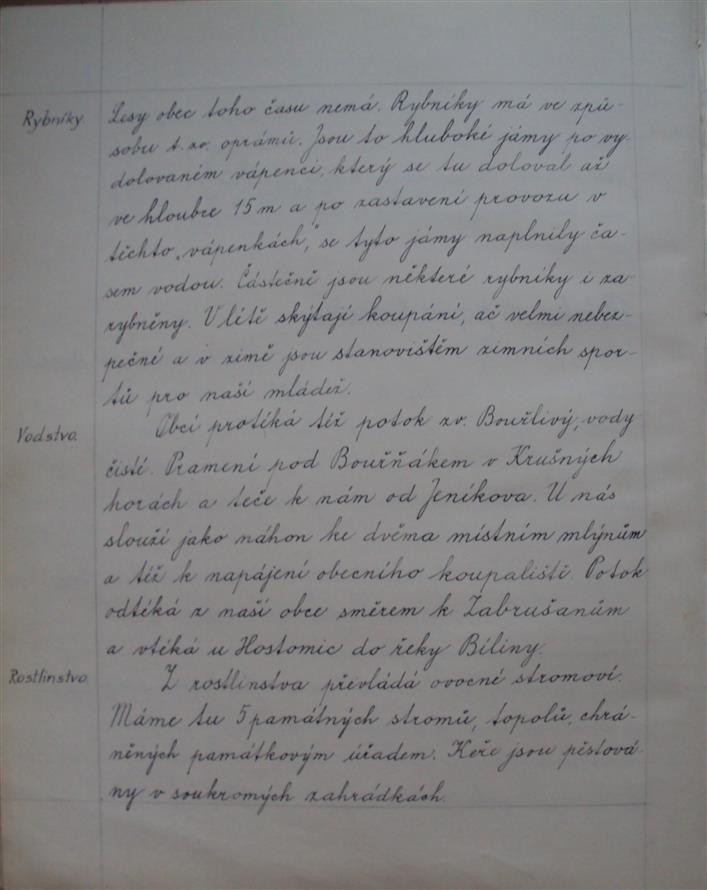 Rybníky. Lesy obec toho času nemá. Rybníky má ve způ-
sobu t. zv. oprámů. Jsou to hluboké jámy po vy-
dolovaném vápenci, který se tu doloval až
ve hloubce 15 m a po zastavení provozu v
těchto „vápenkách“, se tyto jámy naplnily ča-
sem vodou. Částečně jsou některé rybníky i za-
rybněny. V létě skýtají koupání, ač velmi nebez-
pečné a v zimě jsou stanovištěm zimních spor-
tů pro naší mládež.
Vodstvo. Obcí protéká též potok zv. Bouřlivý, vody
čisté. Pramení pod Bouřňákem v Krušných
horách a teče k nám od Jeníkova. U nás
slouží jako náhon ke dvěma místním mlýnům
a též k napájení obecního koupaliště. Potok
odtéká z naší obce směrem k Zabrušanům
a vtéká u Hostomic do řeky Bíliny.
Rostlinstvo. Z rostlinstva převládá ovocné stromoví.
Máme tu 5 památných stromů, topolů, chrá-
něných památkovým úřadem. Keře jsou pěstová-
ny v soukromých zahrádkách.